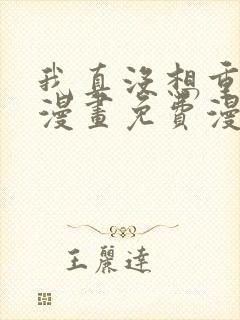 我真没想重
漫畫免費漫
王麗達